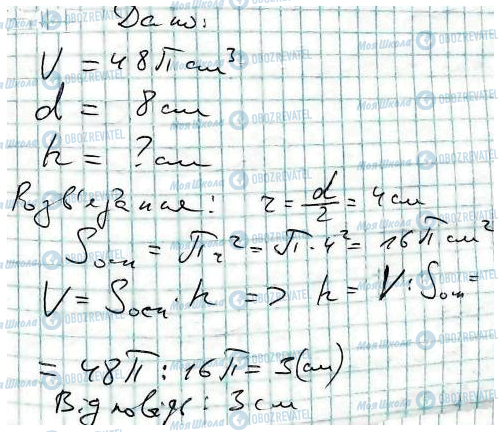 Дано:
V = 48π см³
d = 8 см
h = ? см
Розв'язання: r = d/2 = 4 см
Sосн = πr² = π·4² = 16π см²
V = Sосн · h => h = V : Sосн =
= 48π : 16π = 3 (см)
Відповідь: 3 см